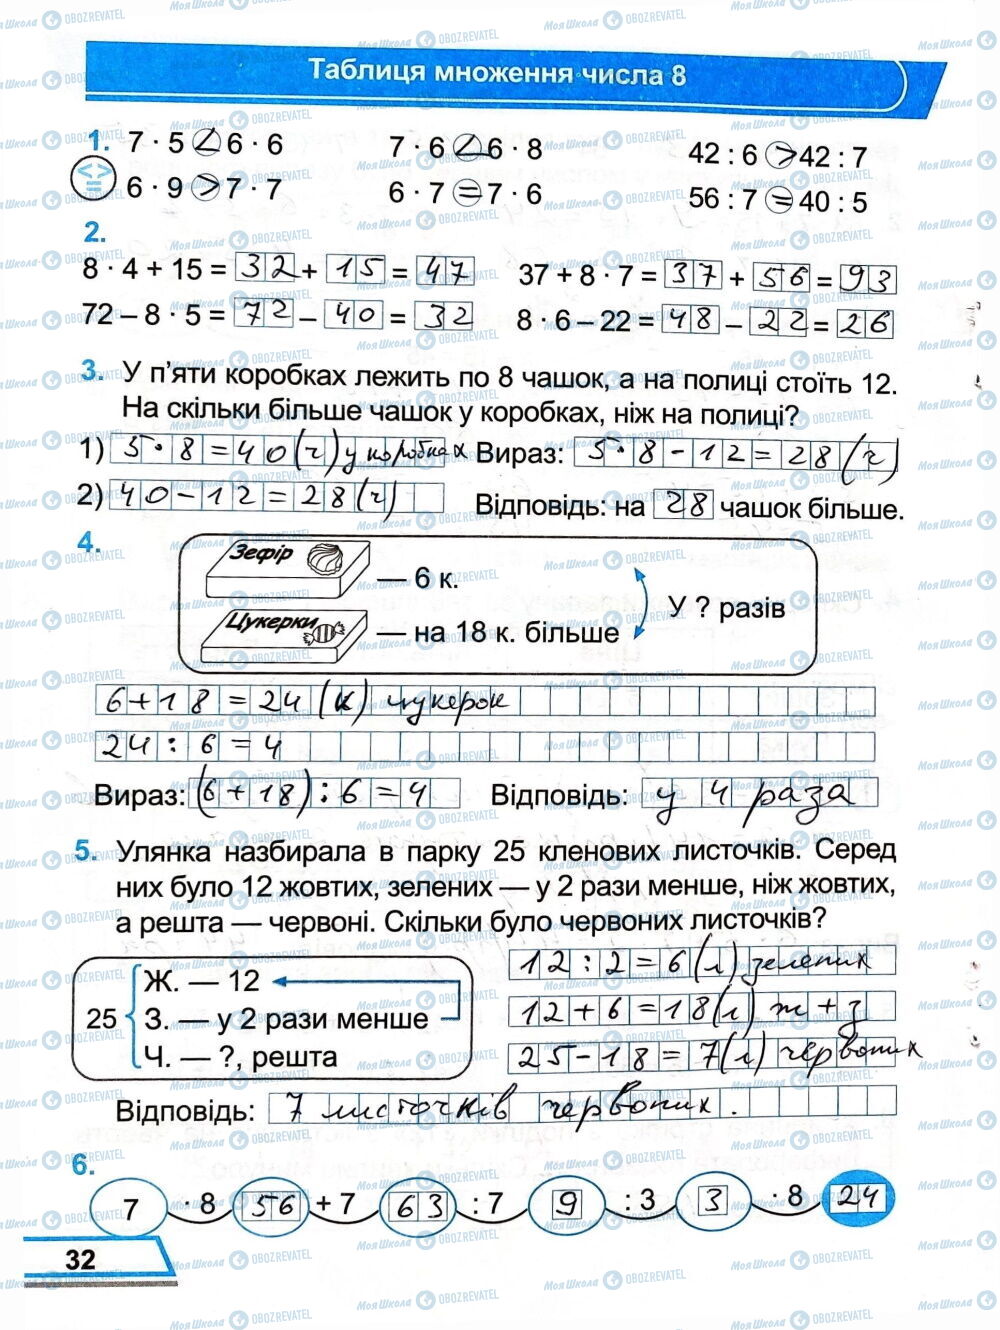 Таблиця множення числа 8
1. 7 · 5 < 6 · 6 7 · 6 < 6 · 8 42 : 6 > 42 : 7
< > = 6 · 9 > 7 · 7 6 · 7 = 7 · 6 56 : 7 = 40 : 5
2.
8 · 4 + 15 = 32 + 15 = 47 37 + 8 · 7 = 37 + 56 = 93
72 – 8 · 5 = 72 – 40 = 32 8 · 6 – 22 = 48 – 22 = 26
3. У п’яти коробках лежить по 8 чашок, а на полиці стоїть 12.
На скільки більше чашок у коробках, ніж на полиці?
1) 5 · 8 = 40 (ч) у коробках Вираз: 5 · 8 - 12 = 28 (ч)
2) 40 - 12 = 28 (ч) Відповідь: на 28 чашок більше.
4.
Зефір — 6 к.
У ? разів
Цукерки — на 18 к. більше
6 + 18 = 24 (к) цукерок
24 : 6 = 4
Вираз: (6 + 18) : 6 = 4 Відповідь: у 4 раза
5. Улянка назбирала в парку 25 кленових листочків. Серед
них було 12 жовтих, зелених — у 2 рази менше, ніж жовтих,
а решта — червоні. Скільки було червоних листочків?
25
Ж. — 12
З. — у 2 рази менше
Ч. — ?, решта
12 : 2 = 6 (л) зелених
12 + 6 = 18 (л) ж + з
25 - 18 = 7 (л) червоних
Відповідь: 7 листочків червоних.
6.
7 · 8 56 + 7 63 : 7 9 : 3 3 · 8 24
32
МояШкола OBOZREVATEL